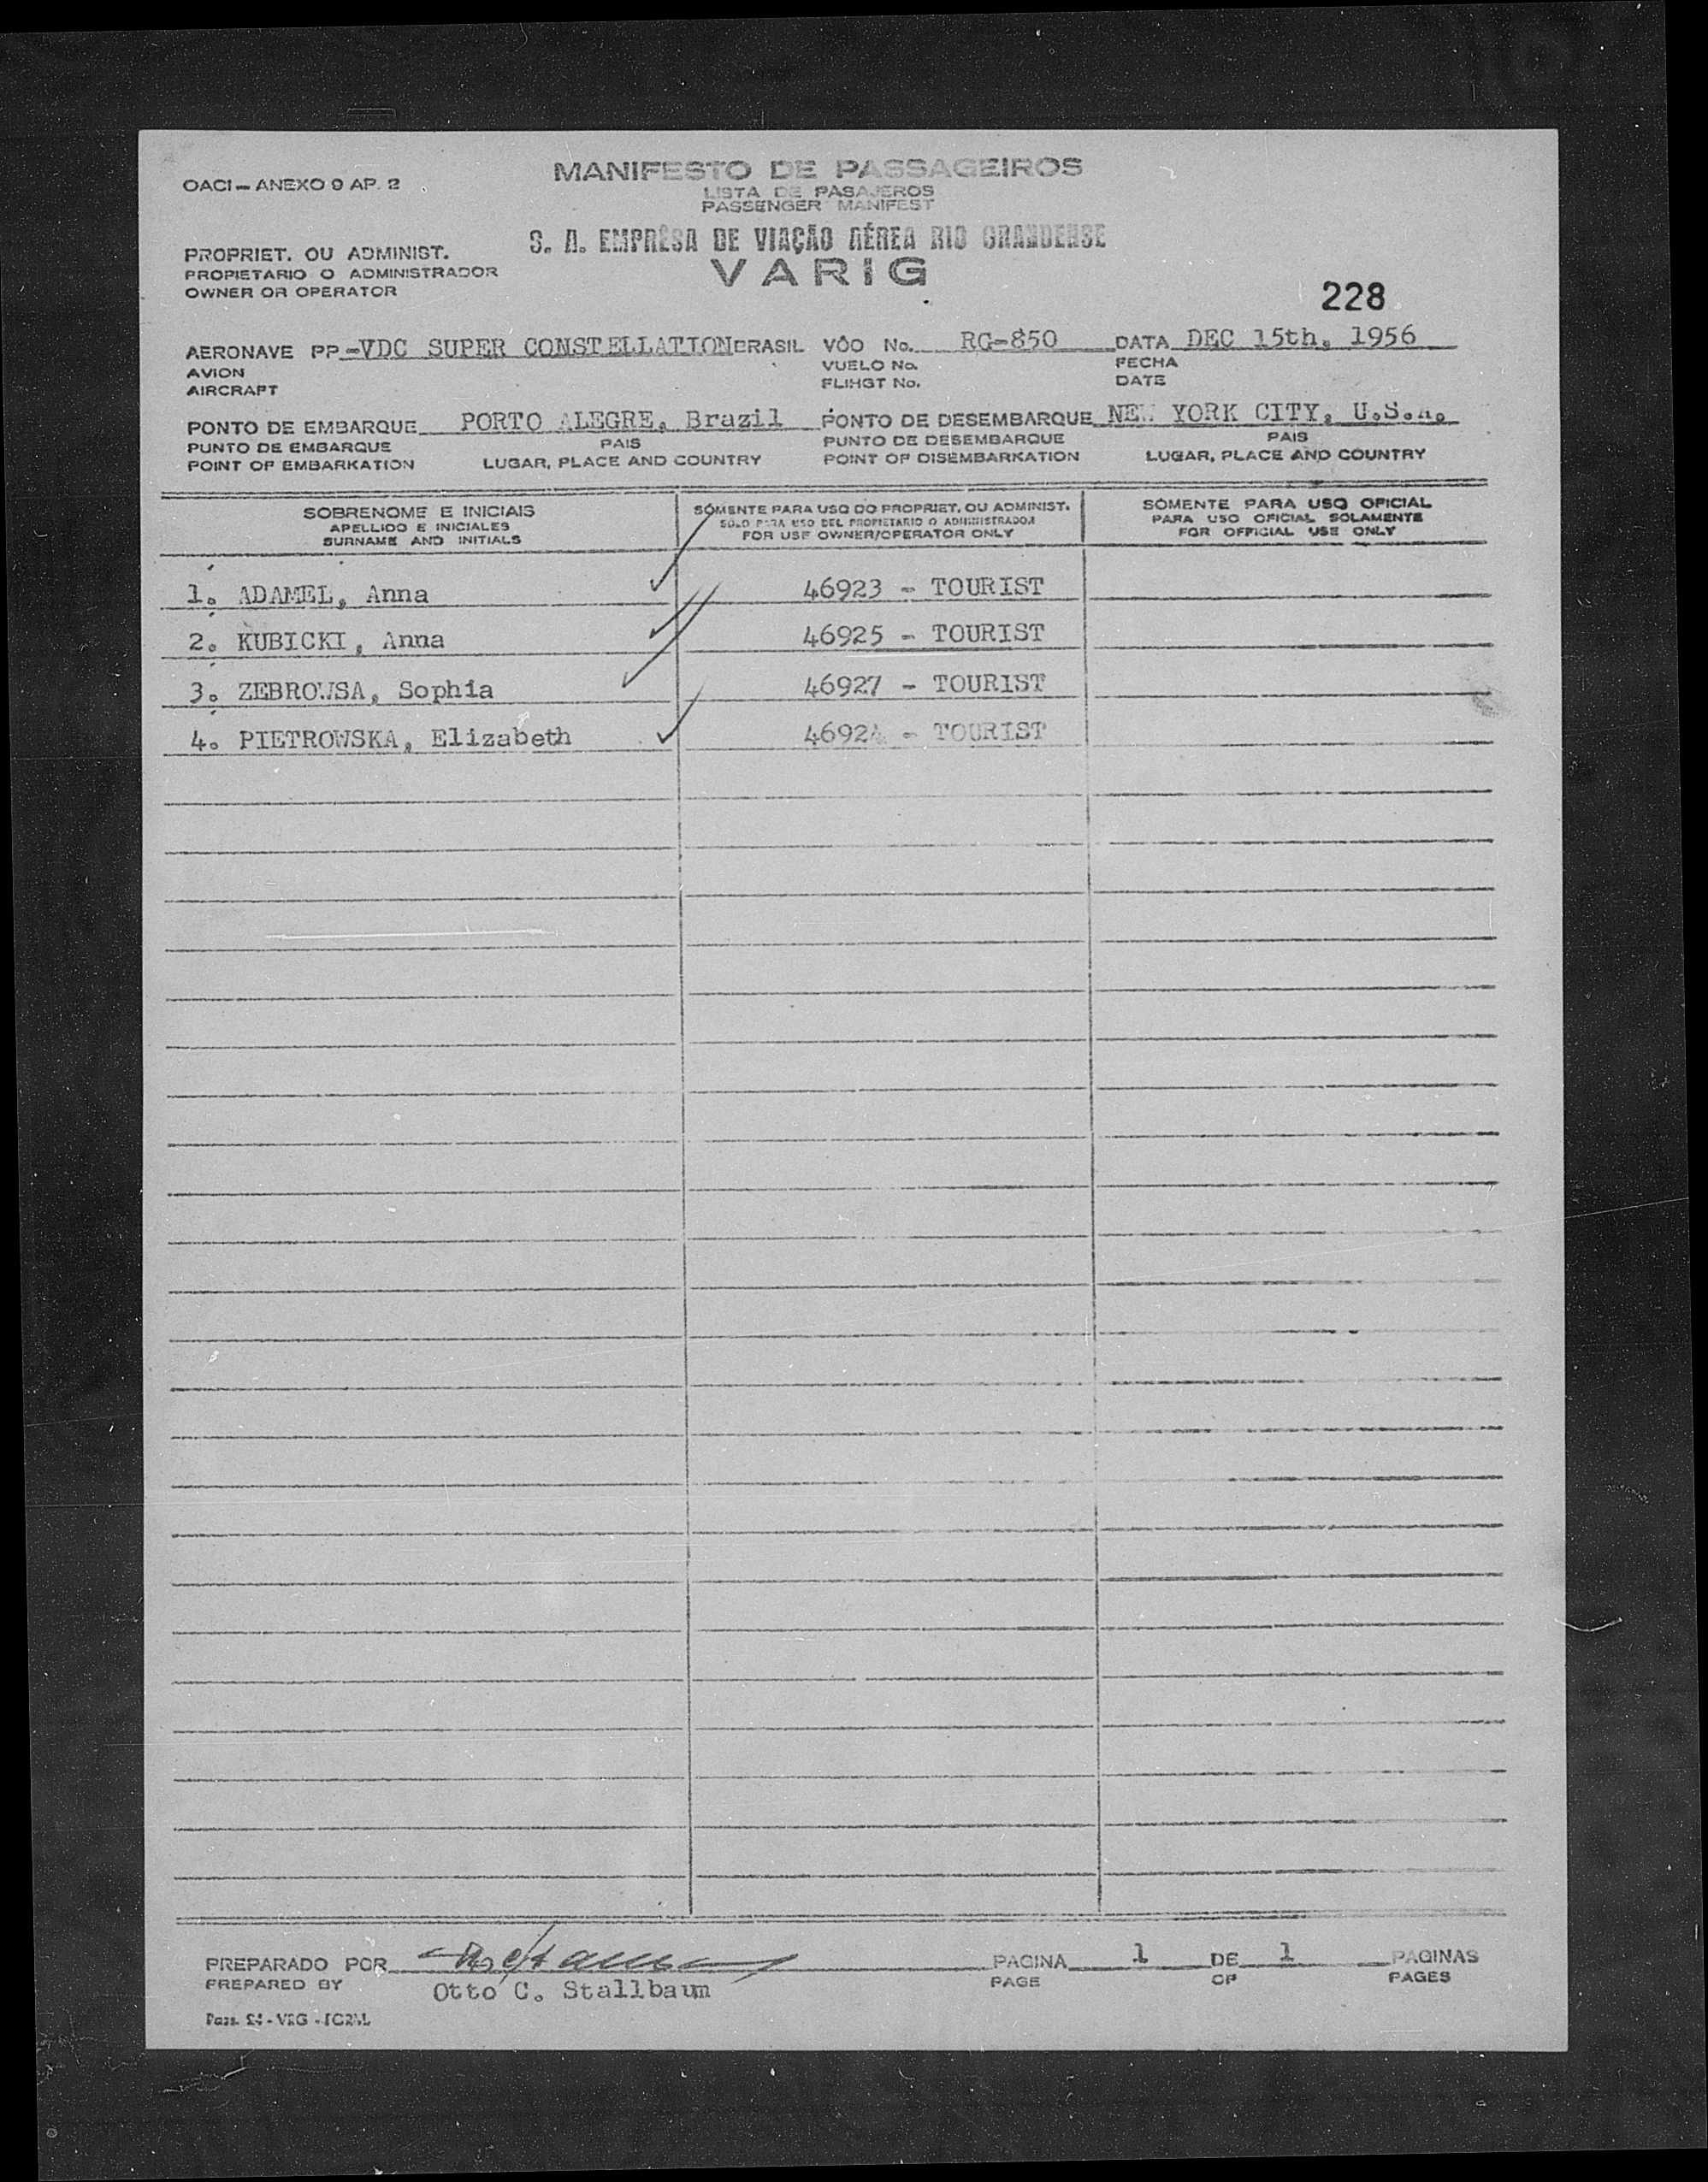 OACI - ANEXO 9 AP. 2
MANIFESTO DE PASSAGEIROS
LISTA DE PASAJEROS
PASSENGER MANIFEST
S. A. EMPRÊSA DE VIAÇÃO AÉREA RIO GRANDENSE
VARIG
PROPRIET. OU ADMINIST.
PROPIETARIO O ADMINISTRADOR
OWNER OR OPERATOR
228
AERONAVE PP-VDC SUPER CONSTELLATION BRASIL VÔO No. RG-850 DATA DEC 15th, 1956
AVION VUELO No. FECHA
AIRCRAFT FLIHGT No. DATE
PONTO DE EMBARQUE PORTO ALEGRE, Brazil PONTO DE DESEMBARQUE NEW YORK CITY, U.S.A.
PUNTO DE EMBARQUE PAIS PUNTO DE DESEMBARQUE PAIS
POINT OF EMBARKATION LUGAR, PLACE AND COUNTRY POINT OF DISEMBARKATION LUGAR, PLACE AND COUNTRY
SOBRENOME E INICIAIS
APELLIDO E INICIALES
SURNAME AND INITIALS
SÓMENTE PARA USO DO PROPRIET. OU ADMINIST.
SÓLO PARA USO DEL PROPIETARIO O ADMINISTRADOR
FOR USE OWNER/OPERATOR ONLY
SÓMENTE PARA USO OFICIAL
PARA USO OFICIAL SOLAMENTE
FOR OFFICIAL USE ONLY
1. ADAMEL, Anna 46923 - TOURIST
2. KUBICKI, Anna 46925 - TOURIST
3. ZEBROWSA, Sophia 46927 - TOURIST
4. PIETROWSKA, Elizabeth 46924 - TOURIST
PREPARADO POR PAGINA 1 DE 1 PAGINAS
PREPARED BY Otto C. Stallbaum PAGE OF PAGES